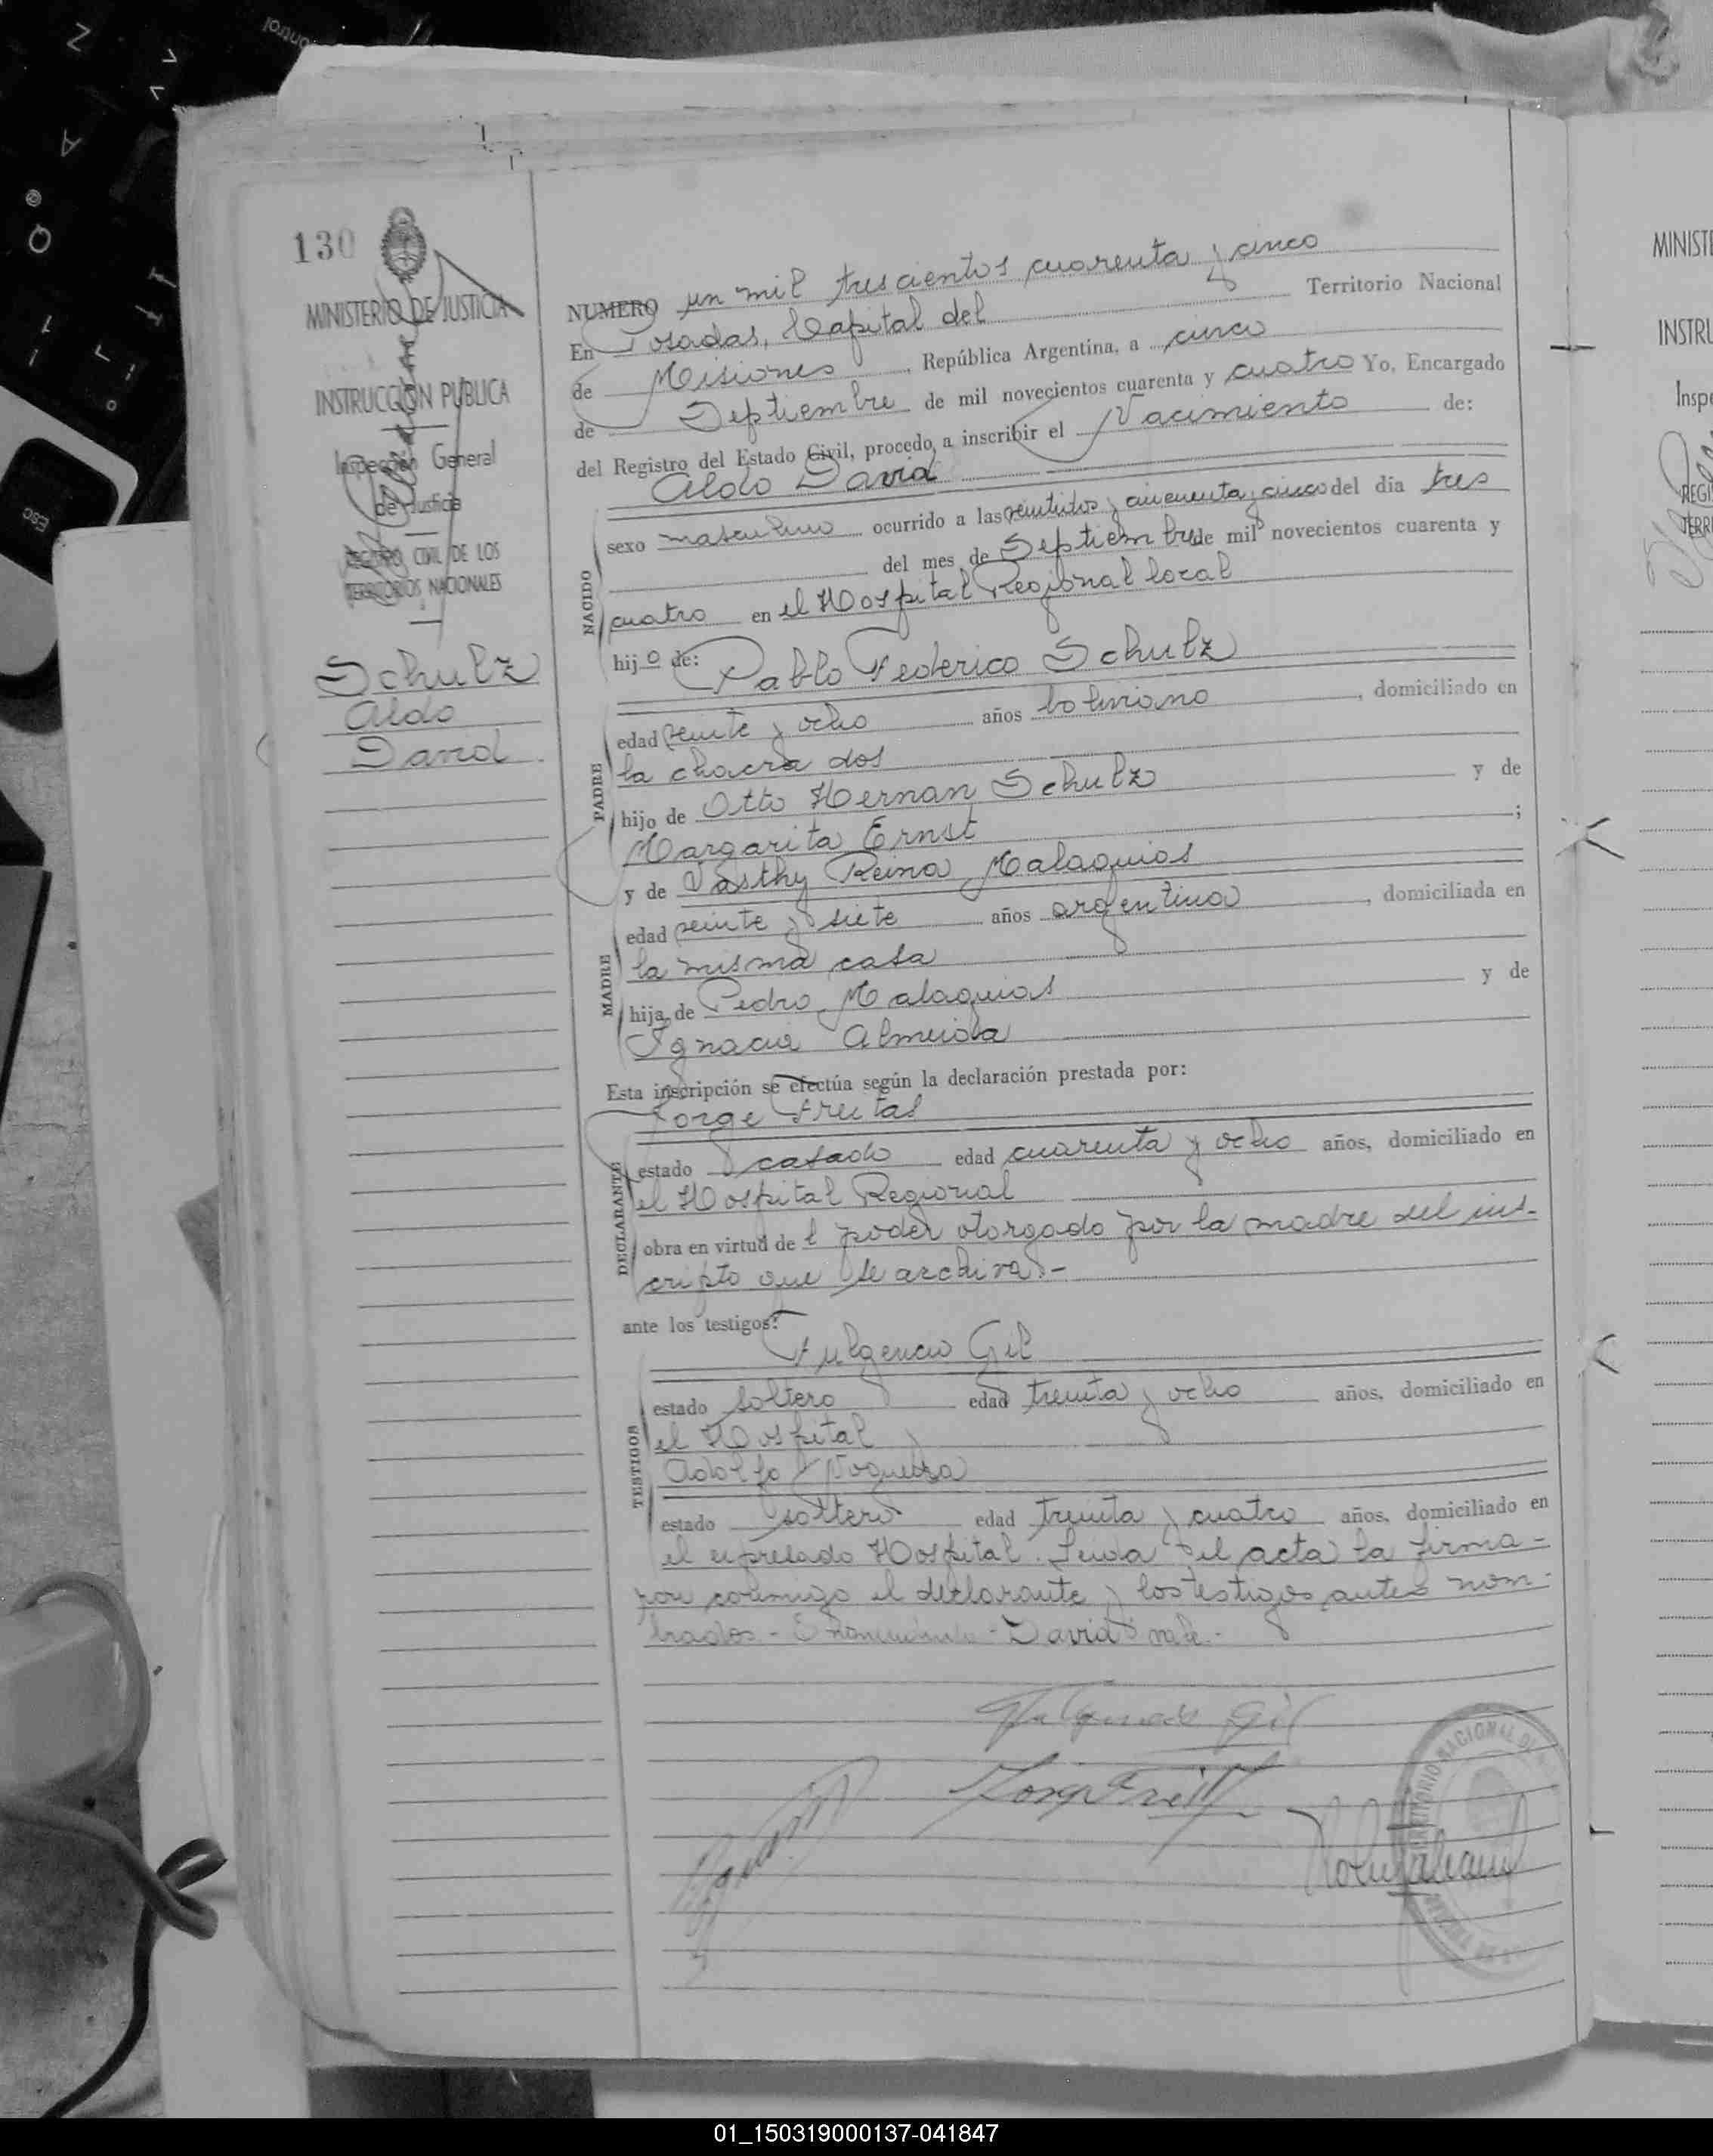 130
MINISTERIO DE JUSTICIA
INSTRUCCIÓN PUBLICA
Inspección General
de Justicia
REGISTRO CIVIL DE LOS
TERRITORIOS NACIONALES
Schulz
Aldo
David.
NUMERO un mil trescientos cuarenta y cinco
En Posadas, Capital del Territorio Nacional
de Misiones, República Argentina, a cinco
de Septiembre de mil novecientos cuarenta y cuatro Yo, Encargado
del Registro del Estado Civil, procedo a inscribir el Nacimiento de:
Aldo David
NACIDO
sexo masculino ocurrido a las veintidos y cincuenta y cinco del día tres
del mes de Septiembre de mil novecientos cuarenta y
cuatro en el Hospital Regional local
hijo de: Pablo Federico Schulz
PADRE
edad veinte y ocho años boliviano, domiciliado en
la chacra dos
hijo de Otto Hernan Schulz y de
Margarita Ernst;
y de Vasthy Reina Malaquias
MADRE
edad veinte y siete años argentina, domiciliada en
la misma casa
hija de Pedro Malaquias y de
Ignacia Almeida
Esta inscripción se efectúa según la declaración prestada por:
Jorge Freitas
DECLARANTE
estado casado edad cuarenta y ocho años, domiciliado en
el Hospital Regional
obra en virtud del poder otorgado por la madre del ins-
cripto que se archiva.-
ante los testigos:
Fulgencio Gil
TESTIGOS
estado soltero edad treinta y ocho años, domiciliado en
el Hospital
Adolfo Nogueira
estado soltero edad treinta y cuatro años, domiciliado en
el expresado Hospital. Leida el acta la firma-
ron conmigo el declarante y los testigos antes nom-
brados.- Enmendado - David vale.-
Fulgencio Gil
Jorge Freitas
TERRITORIO NACIONAL DE
MINISTE
INSTRU
Inspe
REGI
TERR
Esc
01_150319000137-041847